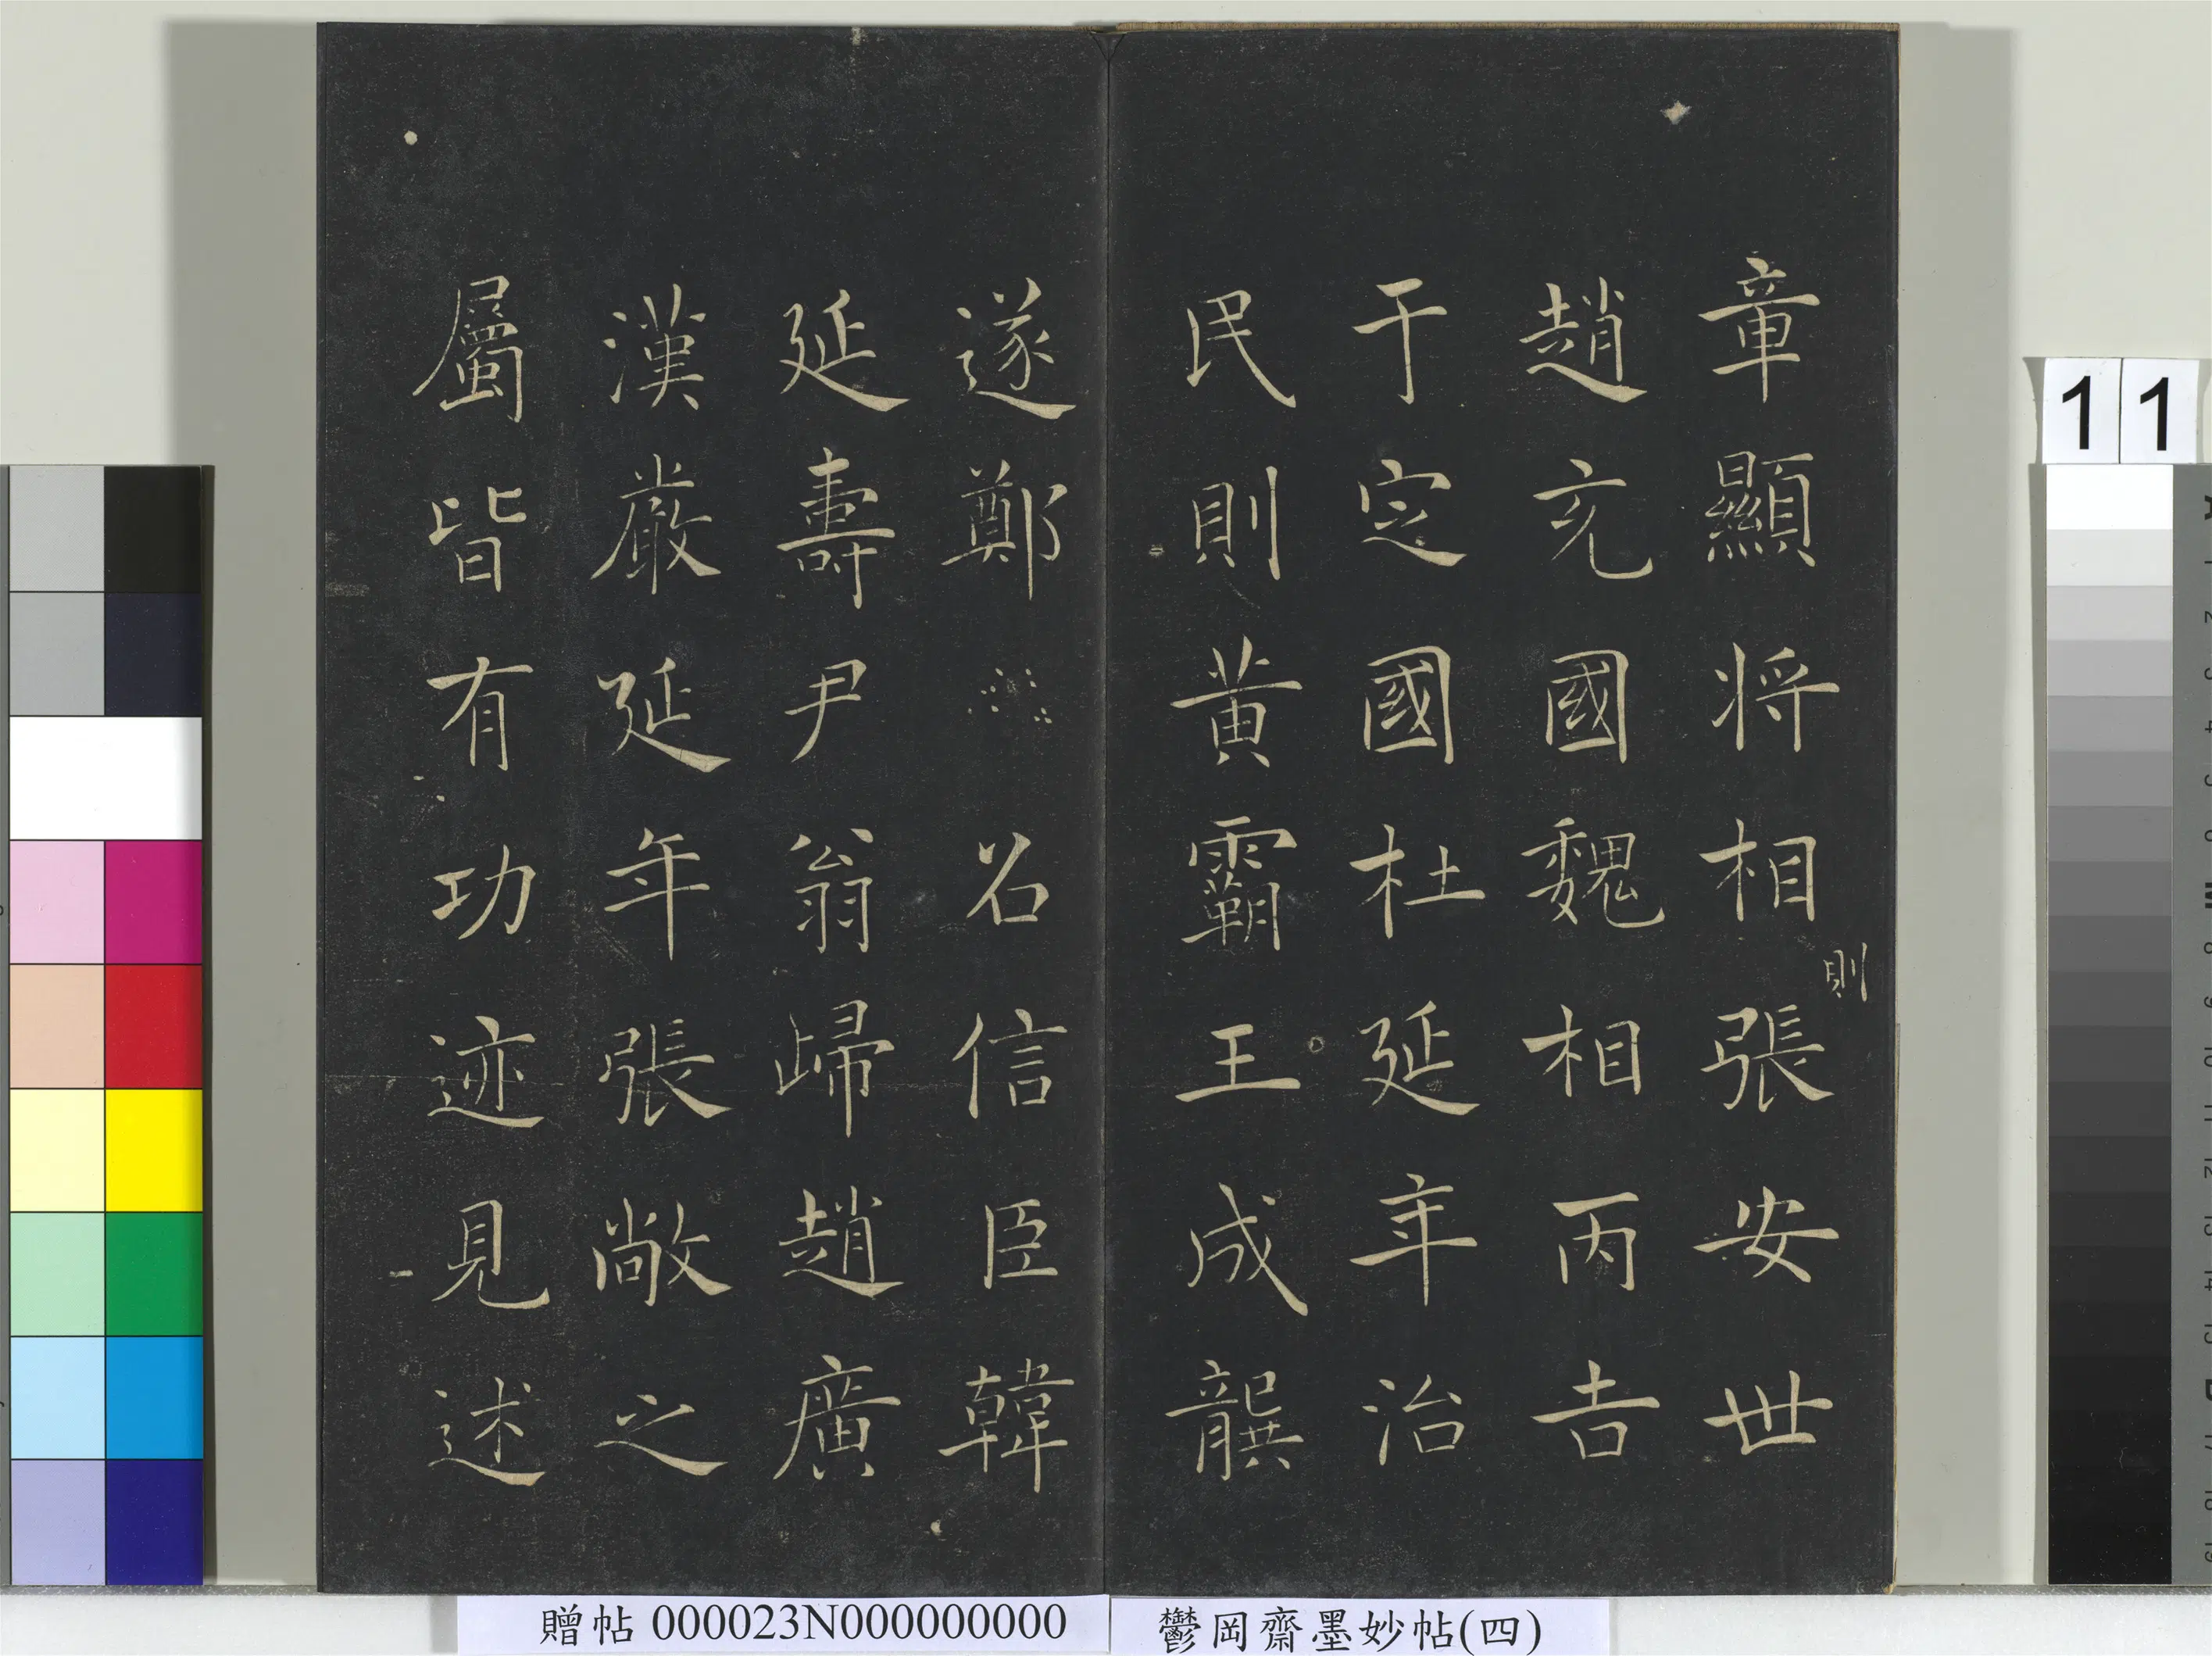 章顯將相張安世
則
趙充國魏相丙吉
于定國杜延年治
民則黃霸王成龔
遂鄭名信臣韓
延壽尹翁歸趙廣
漢嚴延年張敞之
屬皆有功迹見述
贈帖 000023N000000000
鬱岡齋墨妙帖(四)
11